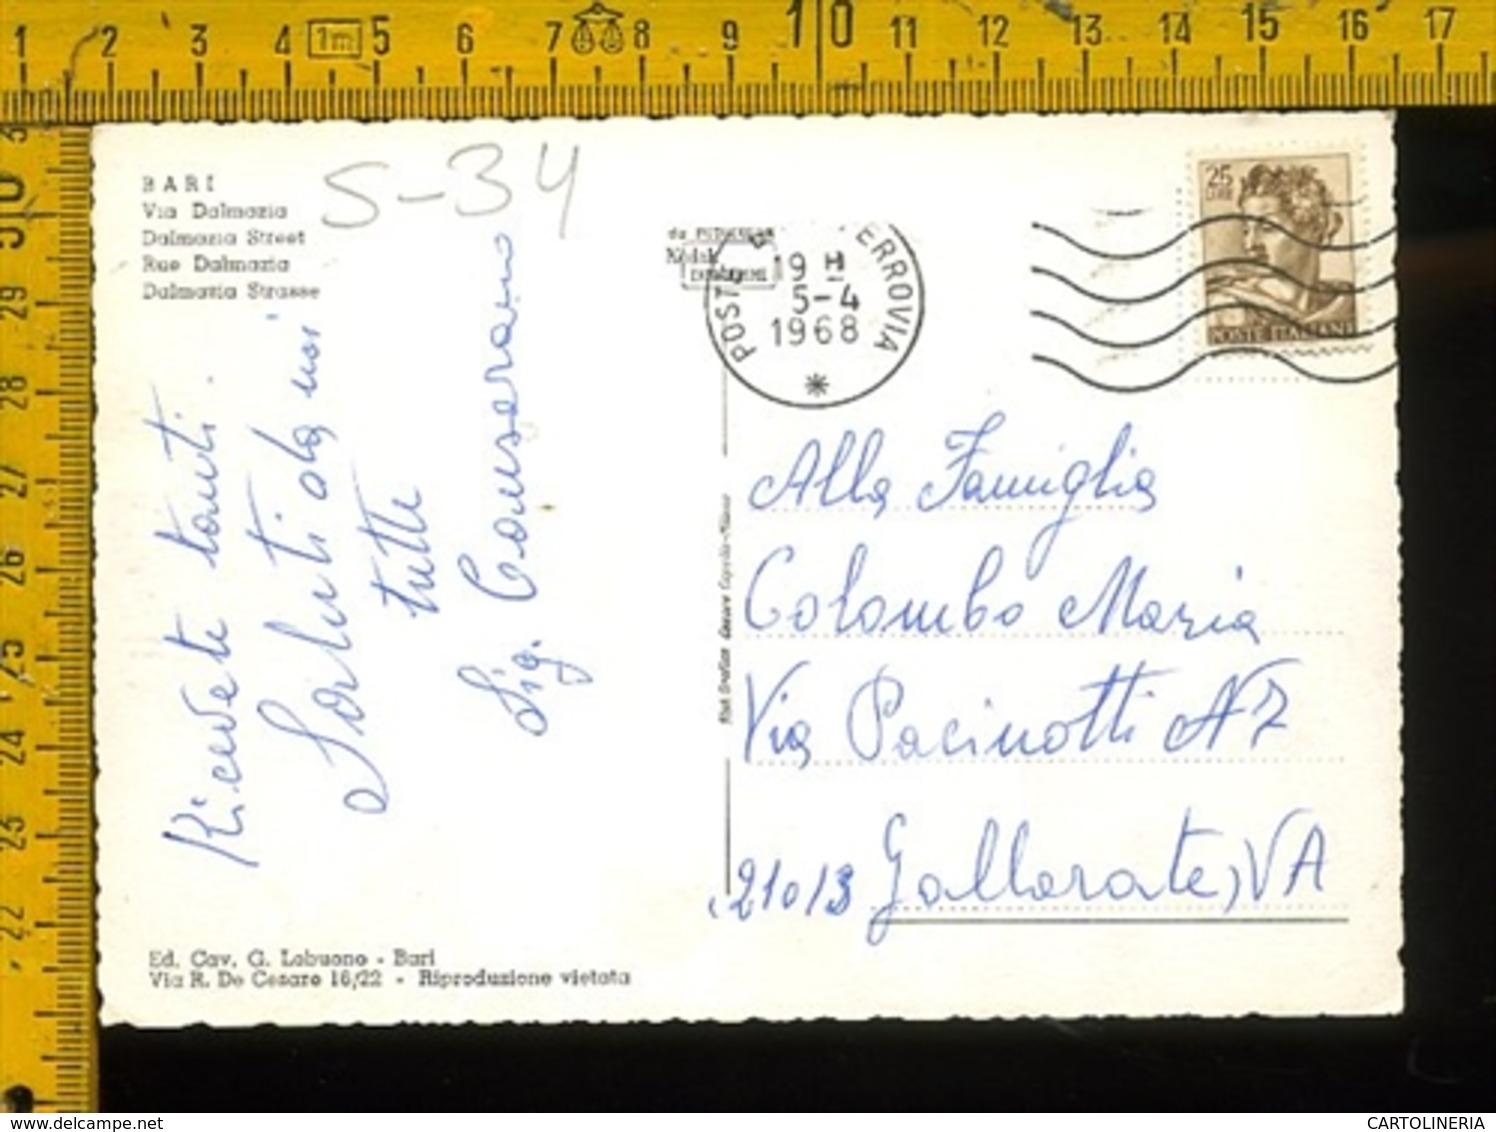 1 2 3 4 1m 5 6 7 8 9 10 11 12 13 14 15 16 17
BARI
Via Dalmazia
Dalmazia Street
Rue Dalmazia
Dalmazia Strasse
S-34
19 H
5-4
1968
POSTE ERROVIA
25
LIRE
POSTE ITALIANE
Ricevete tanti
Saluti da noi
tutti
Sig. Conserano
Alla Famiglia
Colombo Maria
Via Pacinotti N7
21013 Gallarate, VA
Ed. Cav. G. Lobuono - Bari
Via R. De Cesare 16/22 - Riproduzione vietata
29
28
27
26
25
24
23
22
www.delcampe.net
CARTOLINERIA